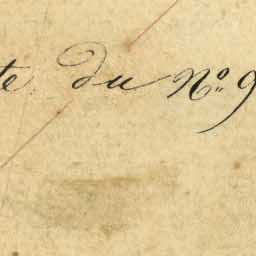 te du Nº. 9